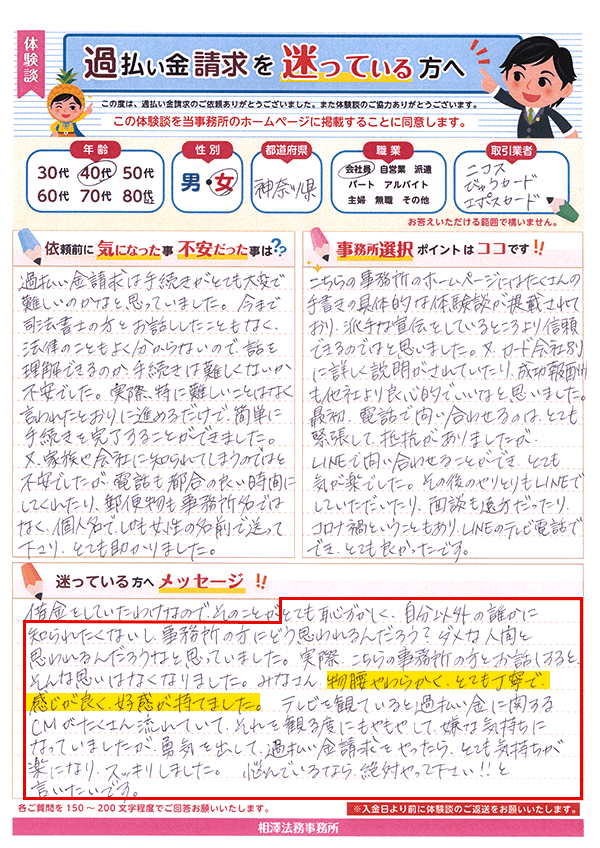 体験談
過払い金請求を迷っている方へ
この度は、過払い金請求のご依頼ありがとうございました。また体験談のご協力ありがとうございます。
この体験談を当事務所のホームページに掲載することに同意します。
年齢
30代 40代 50代
60代 70代 80代以上
性別
男・女
都道府県
神奈川県
職業
会社員 自営業 派遣
パート アルバイト
主婦 無職 その他
取引業者
ニコス
びゅうカード
エポスカード
お答えいただける範囲で構いません。
依頼前に気になった事 不安だった事は??
過払い金請求は手続きがとても大変で
難しいのかなと思っていました。今まで
司法書士の方とお話ししたこともなく、
法律のこともよく分からないので、話を
理解できるのか、手続きは難しくないか
不安でした。実際、特に難しいことはなく
言われたとおりに進めるだけで、簡単に
手続きを完了することができました。
又、家族や会社に知られてしまうのではと
不安でしたが、電話も都合の良い時間に
してくれたり、郵便物も事務所名では
なく、個人名でしかも女性の名前で送って
下さり、とても助かりました。
事務所選択ポイントはココです!!
こちらの事務所のホームページにはたくさんの
手書きの具体的な体験談が掲載されて
おり、派手な宣伝をしているところより信頼
できるのではと思いました。又、カード会社別
に詳しく説明がされていたり、成功報酬
も他社より良心的でいいなと思いました。
最初、電話で問い合わせるのは、とても
緊張して、抵抗がありましたが、
LINEで問い合わせることができ、とても
気が楽でした。その後のやりとりもLINEで
していただいたり、面談も遠方だったり、
コロナ禍ということもあり、LINEのテレビ電話で
でき、とても良かったです。
迷っている方へメッセージ!!
借金をしていたわけなので、そのことがとても恥ずかしく、自分以外の誰かに
知られたくないし、事務所の方にどう思われるんだろう?ダメな人間と
思われるんだろうなと思っていました。実際、こちらの事務所の方とお話しすると、
そんな思いはなくなりました。みなさん、物腰やわらかく、とても丁寧で、
感じが良く、好感が持てました。 テレビを観ていると過払い金に関する
CMがたくさん流れていて、それを観る度にもやもやして、嫌な気持ちに
なっていましたが、勇気を出して、過払い金請求をやったら、とても気持ちが
楽になり、スッキリしました。 悩んでいるなら、絶対やって下さい!!と
言いたいです。
各ご質問を150～200文字程度でご回答お願いいたします。
※入金日より前に体験談のご返送をお願いいたします。
相澤法務事務所